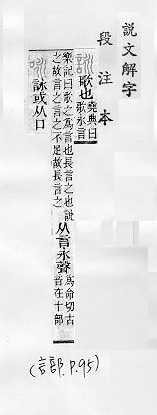 說文解字
段注本
詠
歌也
堯典曰
歌永言
樂記曰歌之爲言也長言之也說
之故言之言之不足故長言之
从言永聲
爲命切古
音在十部
咏
詠或从口
(言部.P.95)